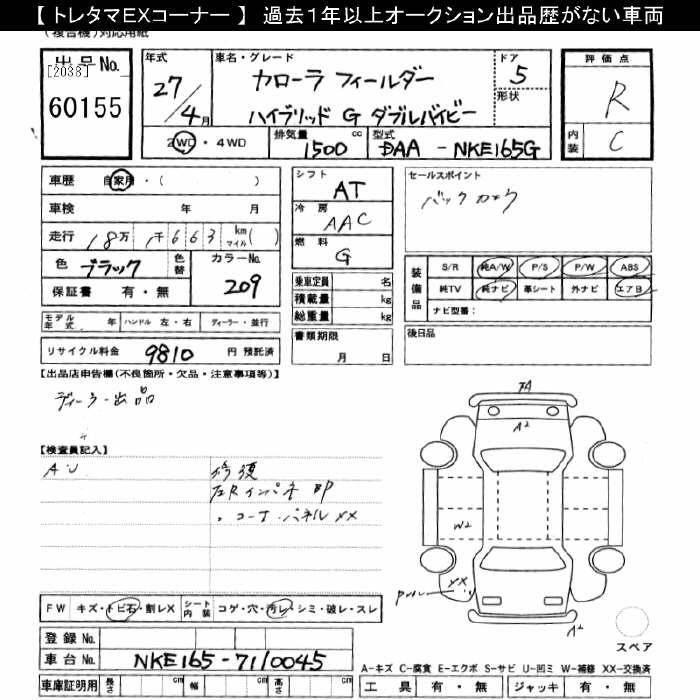 【 トレタマEXコーナー 】 過去１年以上オークション出品歴がない車両
(複合機) 対応用紙
出品No.
[2038]
60155
年式
27/4月
車名・グレード
カローラ フィールダー
ハイブリッド G ダブルバイビー
ドア
5
形状
評価点
R
内装
C
2WD・4WD
排気量
1500 cc
型式
DAA - NKE165G
車歴 自家用・( )
車検 年 月
走行 18万 1千663 km マイル( )
色 ブラック 色替
カラーNo.
209
保証書 有・無
シフト
AT
冷房
AAC
燃料
G
乗車定員 名
積載量 kg
総重量 kg
書類期限
月 日
セールスポイント
バックカメラ
装備品
S/R 純A/W P/S P/W ABS
純TV 純ナビ 革シート 外ナビ エアB
ナビ型番:
後日品
モデル年式 年 ハンドル 左・右 ディーラー・並行
リサイクル料金 9810 円 預託済
【出品店申告欄(不良箇所・欠品・注意事項等)】
ディーラー出品
【検査員記入】
AU
修復
左Rインパネ BP
コーナーパネル XX
FA
A2
W2
XX
A2
スペア
FW キズ・トビ石・割レX
シート内装 コゲ・穴・汚レ・シミ・破レ・スレ
登録No.
車台No. NKE165-7110045
車庫証明用 長さ cm 幅 cm 高さ cm
A-キズ C-腐食 E-エクボ S-サビ U-凹ミ W-補修 XX-交換済
工具 有・無 ジャッキ 有・無